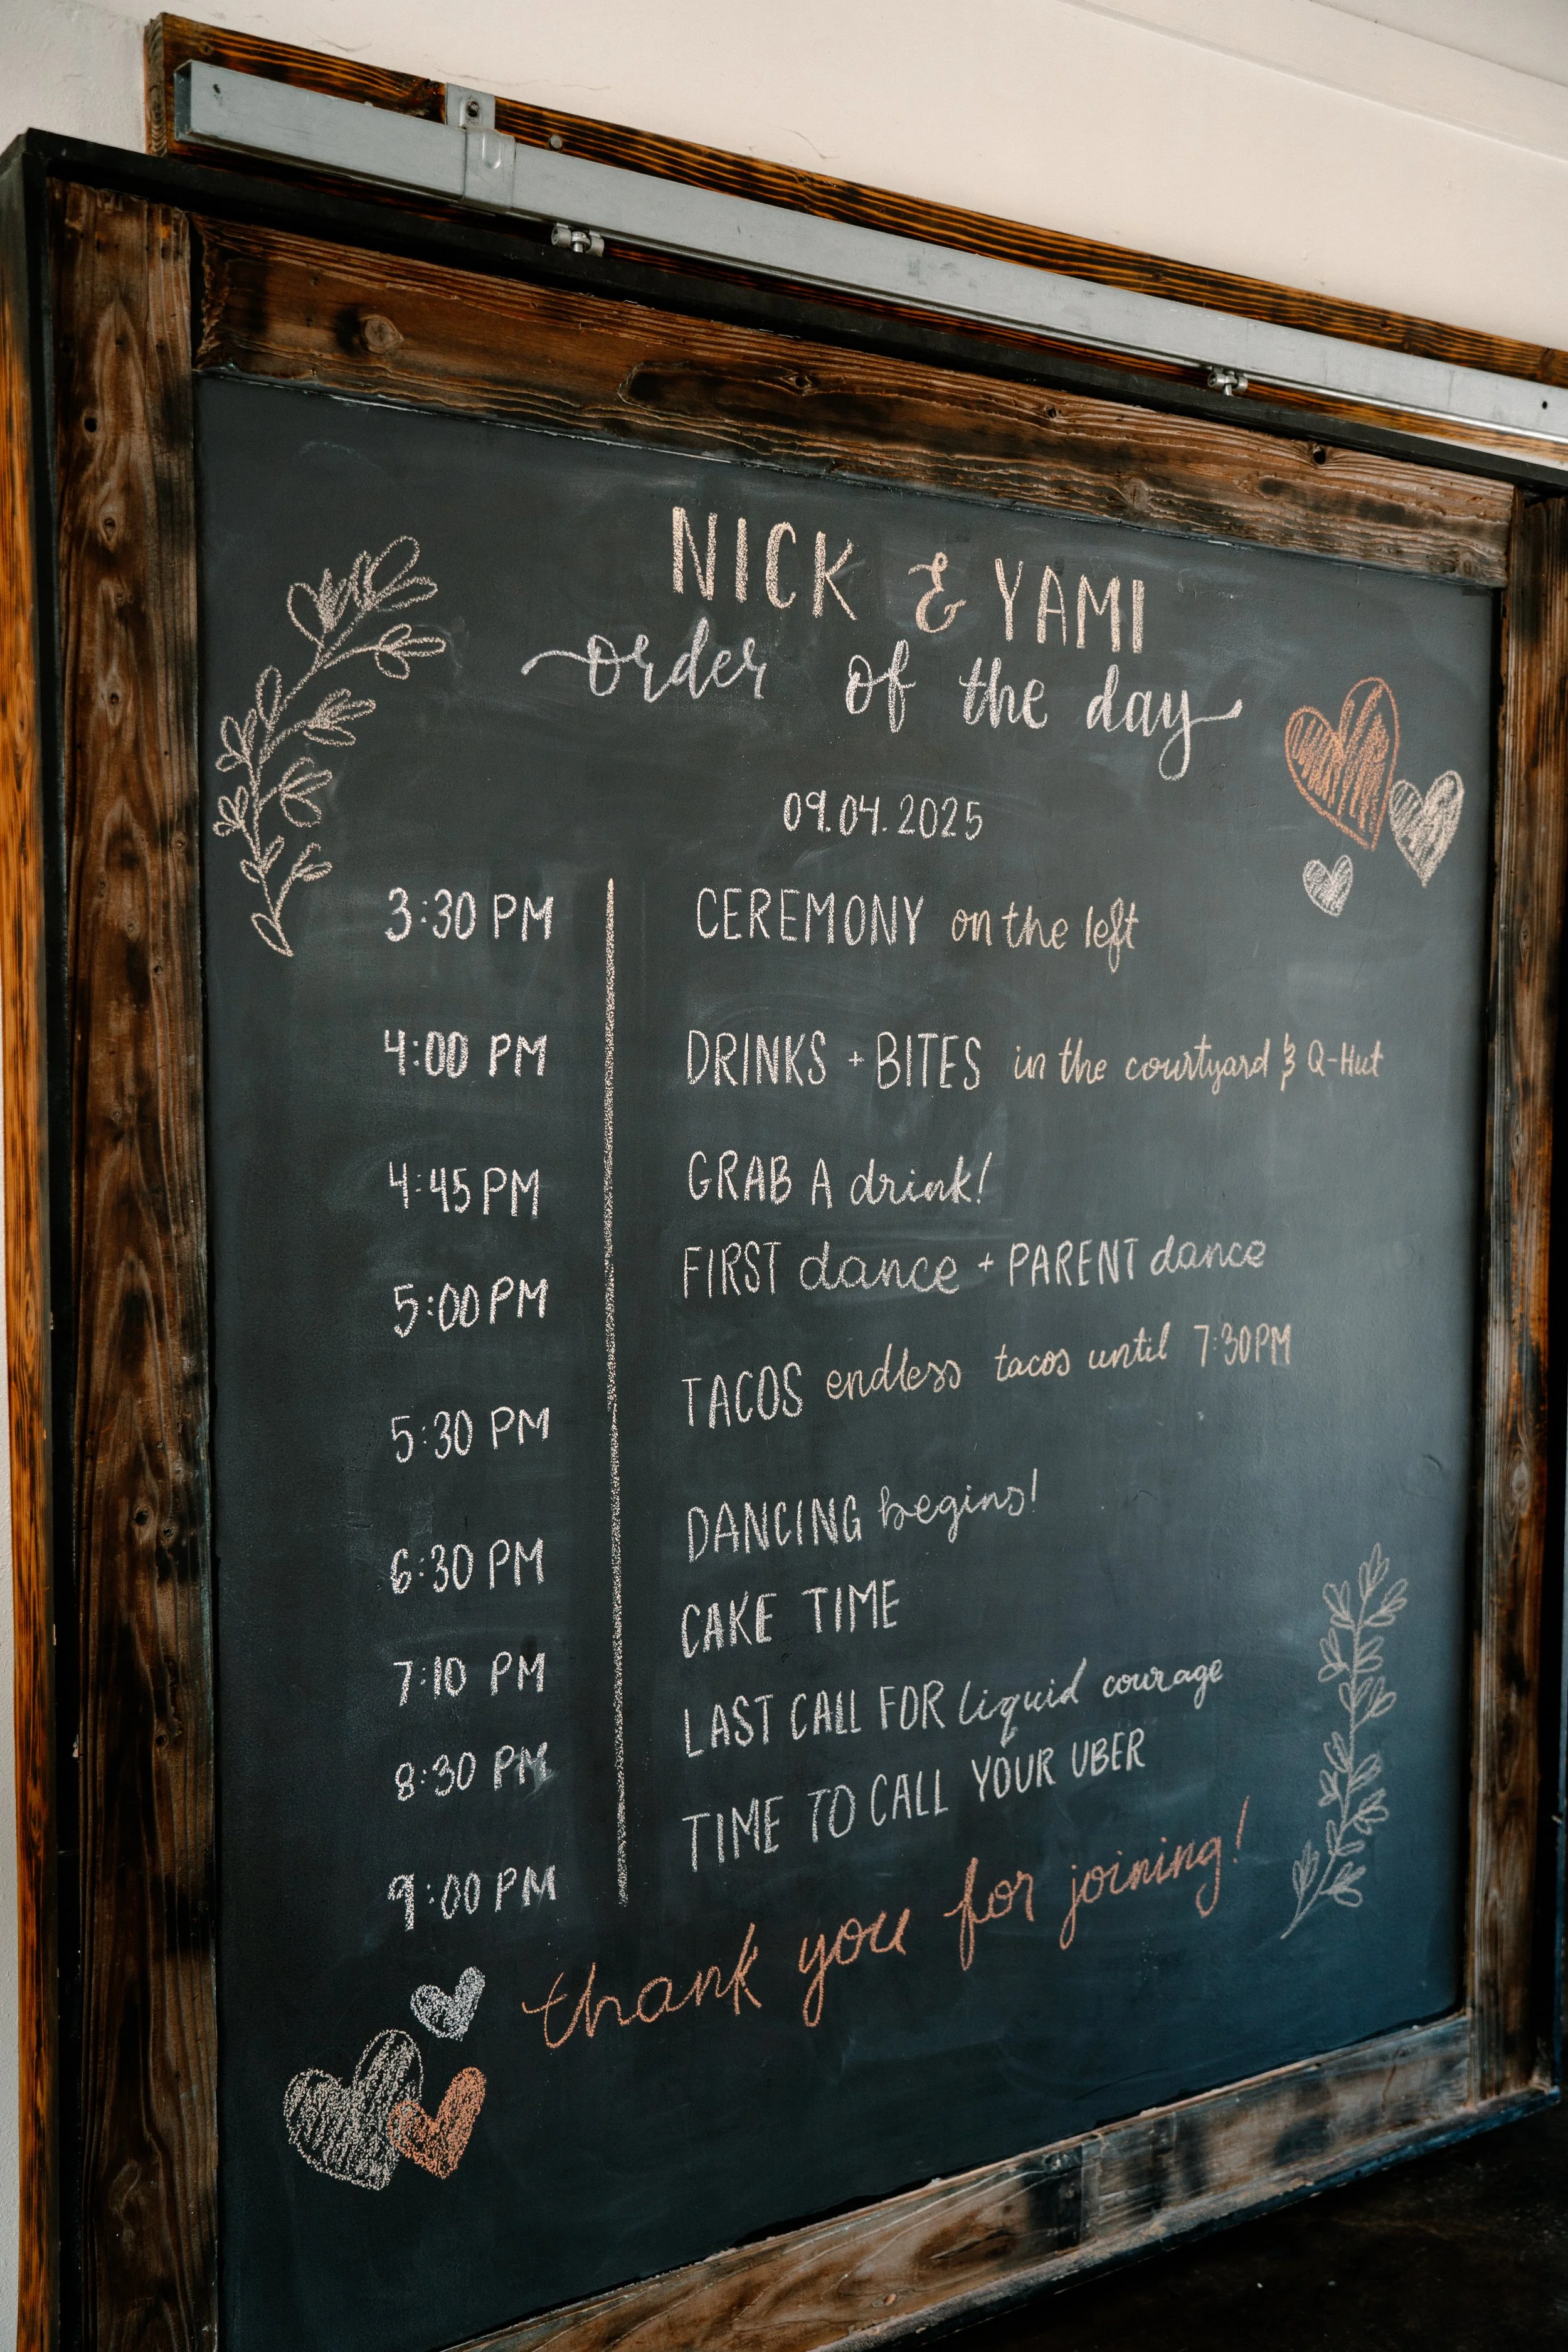 NICK & YAMI
order of the day
09.04.2025
3:30 PM CEREMONY on the left
4:00 PM DRINKS + BITES in the courtyard & Q-Hut
4:45 PM GRAB A drink!
5:00 PM FIRST dance + PARENT dance
5:30 PM TACOS endless tacos until 7:30PM
6:30 PM DANCING begins!
7:10 PM CAKE TIME
8:30 PM LAST CALL FOR liquid courage
9:00 PM TIME TO CALL YOUR UBER
thank you for joining!